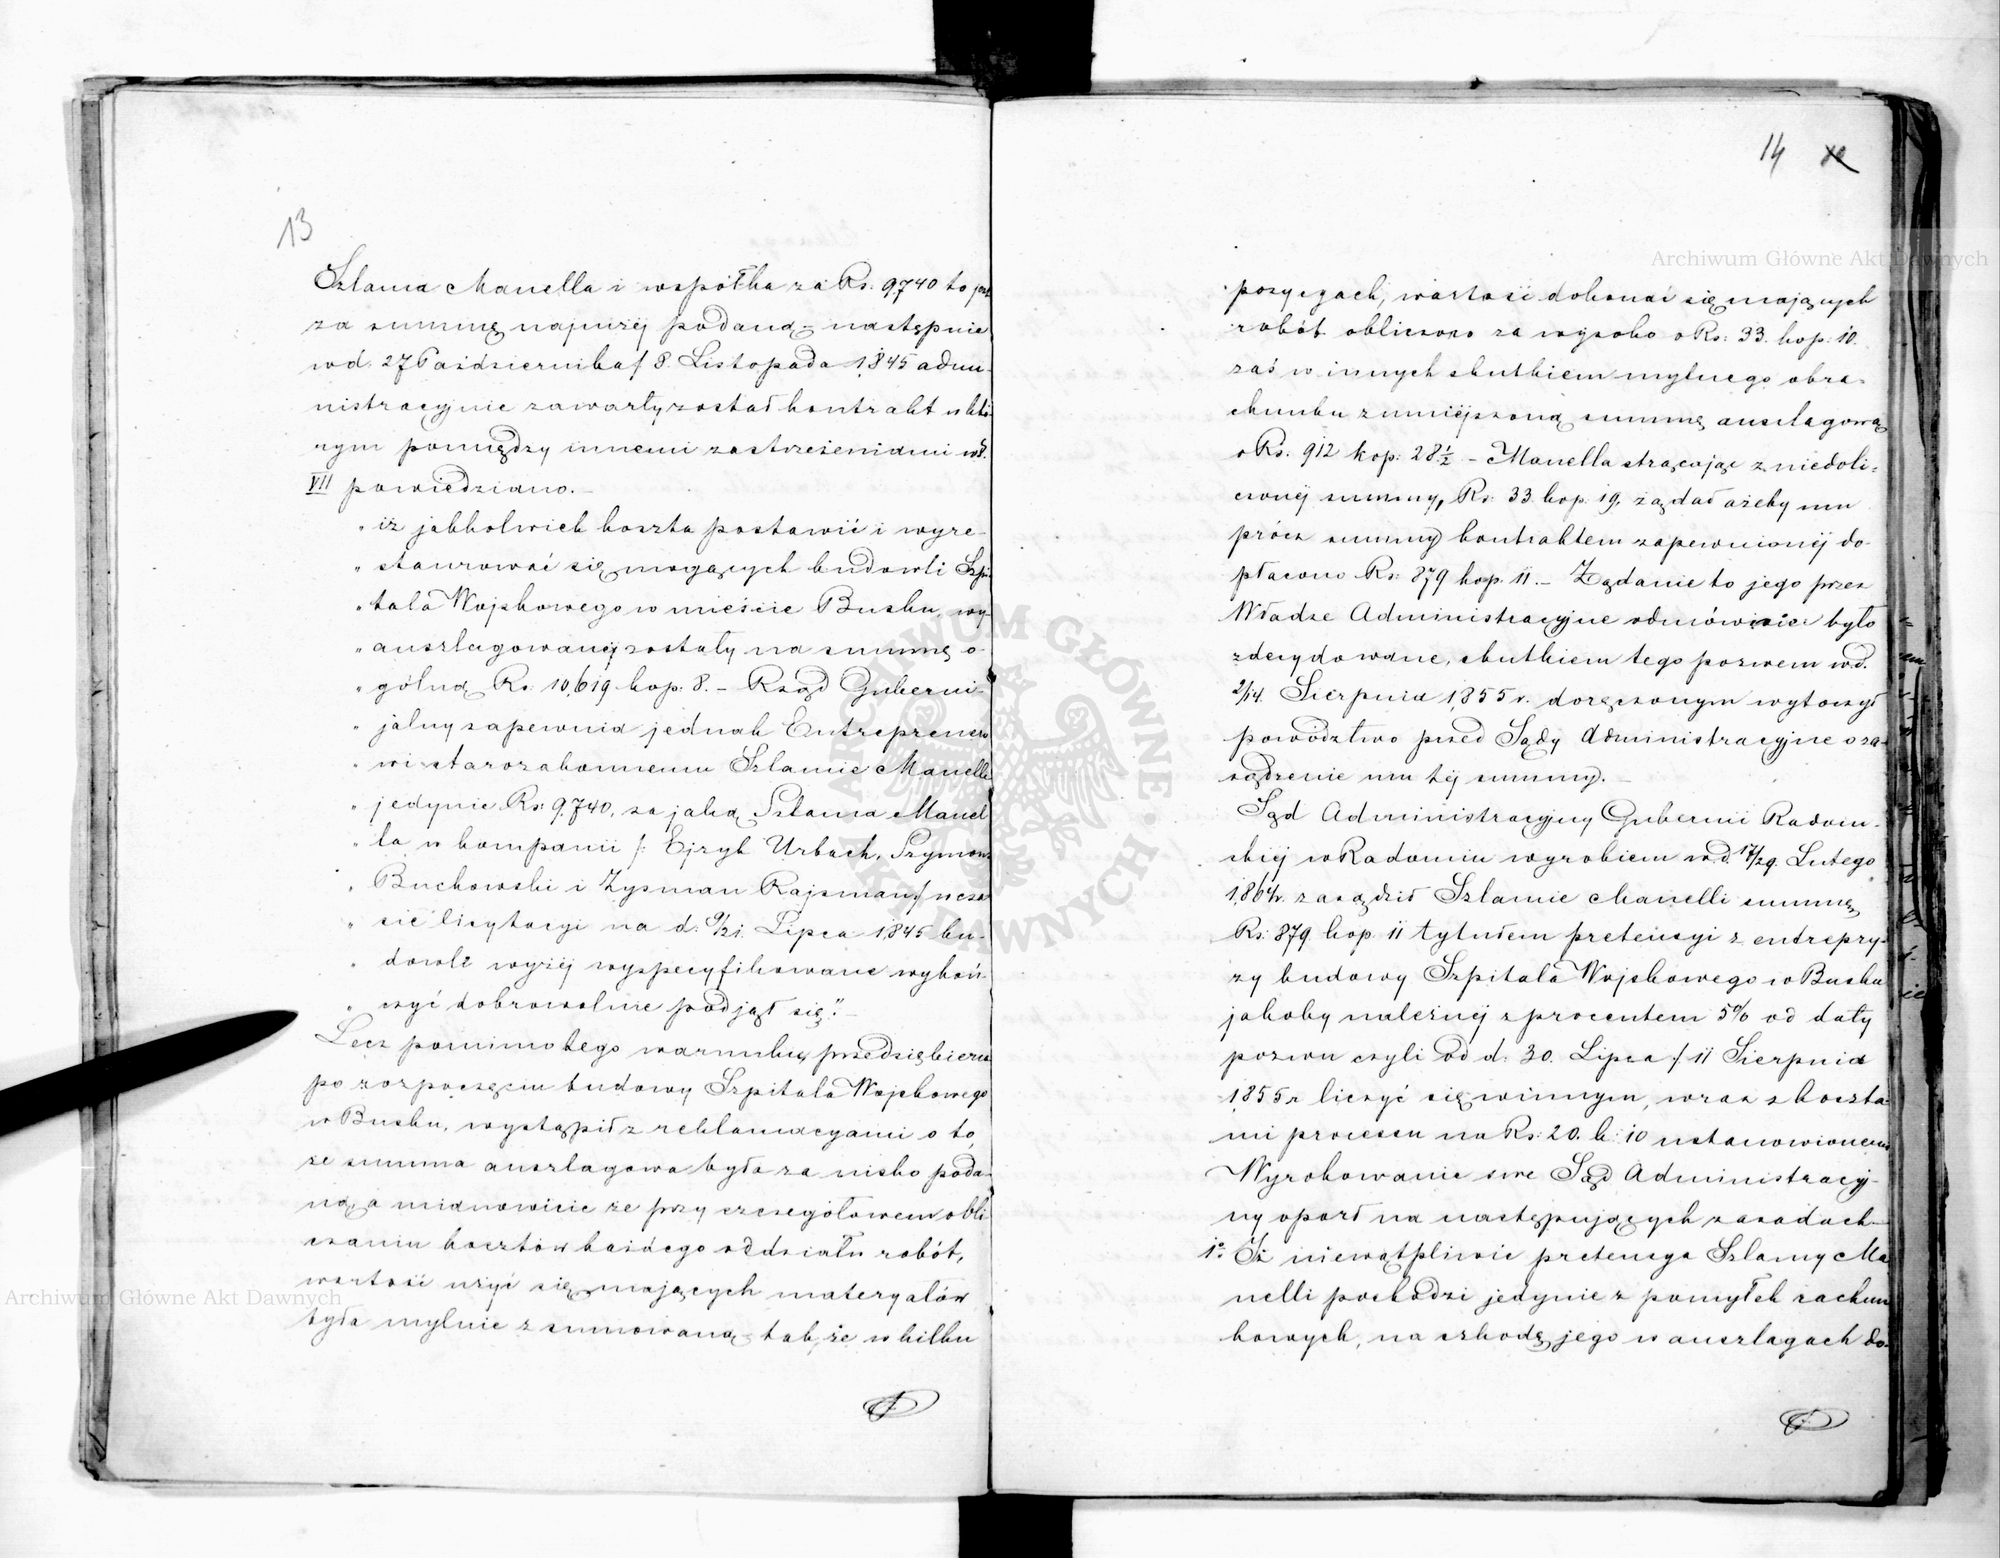 13
Szlama Manella i wspólka za Rs: 9,740 to jest
za summę najniżej podaną – następnie
w d. 27 Października / 8. Listopada 1845 admi-
nistracyjnie zawarty został kontrakt w któ-
rym pomiędzy innemi zastrzeżeniami w §.
VII powiedziano. –
„ iż jakkolwiek koszta postawić i wyre-
„ staurować się mogących budowli Szpi-
„ tala Wojskowego w mieście Busku, wy-
„ anszlagowanej zostały na summę o-
„ gólną Rs: 10,619 kop: 8. – Rząd Guberni-
„ jalny zapewnia jednak Entreprenero
„ wi starozakonnemu Szlamie Manelle
„ jedynie Rs: 9,740, za jaką Szlama Manel
„ la w kompanii /: Ejzyk Urbach, Szymon
„ Buchowski i Zysman Rajsman :/ w cza
„ sie licytacyi na d: 9/21 Lipca 1845 bu-
„ dowle wyżej wyspecyfikowane wykoń-
„ czyć dobrowolnie podjął się." –
Lecz pomimo tego warunku, przedsiębierca
po rozpoczęciu budowy Szpitala Wojskowego
w Busku, wystąpił z reklamacyami o to,
że summa anszlagowa była za nisko poda-
ną, a mianowicie że przy szczegółowem obli
czaniu kosztów każdego oddziału robót,
wartość użyć się mających materyałów
była mylnie zsumowaną – tak, że w kilku
14
pozycyach, wartość dokonać się mających
robót obliczono za wysoko o Rs: 33. kop: 10.
zaś w innych skutkiem mylnego obra-
chunku zmniejszoną summę anszlagową
o Rs. 912 kop: 28½ – Manella strącając z niedoli-
czonej summy, Rs: 33. kop. 19, żądał ażeby mu
prócz summy kontraktem zapewnionej do-
płacono Rs: 879 kop. 11. – Żądanie to jego przez
Władze Administracyjne odmównie było
zdecydowane, skutkiem tego pozwem w d.
2/14. Sierpnia 1855 r. doręczonym wytoczył
powództwo przed Sądy Administracyjne o za-
sądzenie mu tej summy. –
Sąd Administracyjny Gubernii Radom-
skiej w Radomiu wyrokiem w d. 17/29. Lutego
1864 r. zasądził Szlamie Manelli summę
Rs: 879. kop. 11 tytułem pretensyi z entrepry-
zy budowy Szpitala Wojskowego w Busku
jakoby należnej z procentem 5% od daty
pozwu czyli od d: 30. Lipca / 11 Sierpnia
1855 r liczyć się winnym, wraz z koszta
mi procesu na Rs: 20. k: 10 ustanowionemi
Wyrokowanie swe Sąd Administracyj-
ny oparł na następujących zasadach –
1o: Iż niewątpliwie pretensya Szlamy Ma
nelli pochodzi jedynie z pomyłek rachun
kowych, na szkodę jego w anszlagach do-
Archiwum Główne Akt Dawnych
Archiwum Główne Akt Dawnych
ARCHIWUM GŁÓWNE AKT DAWNYCH